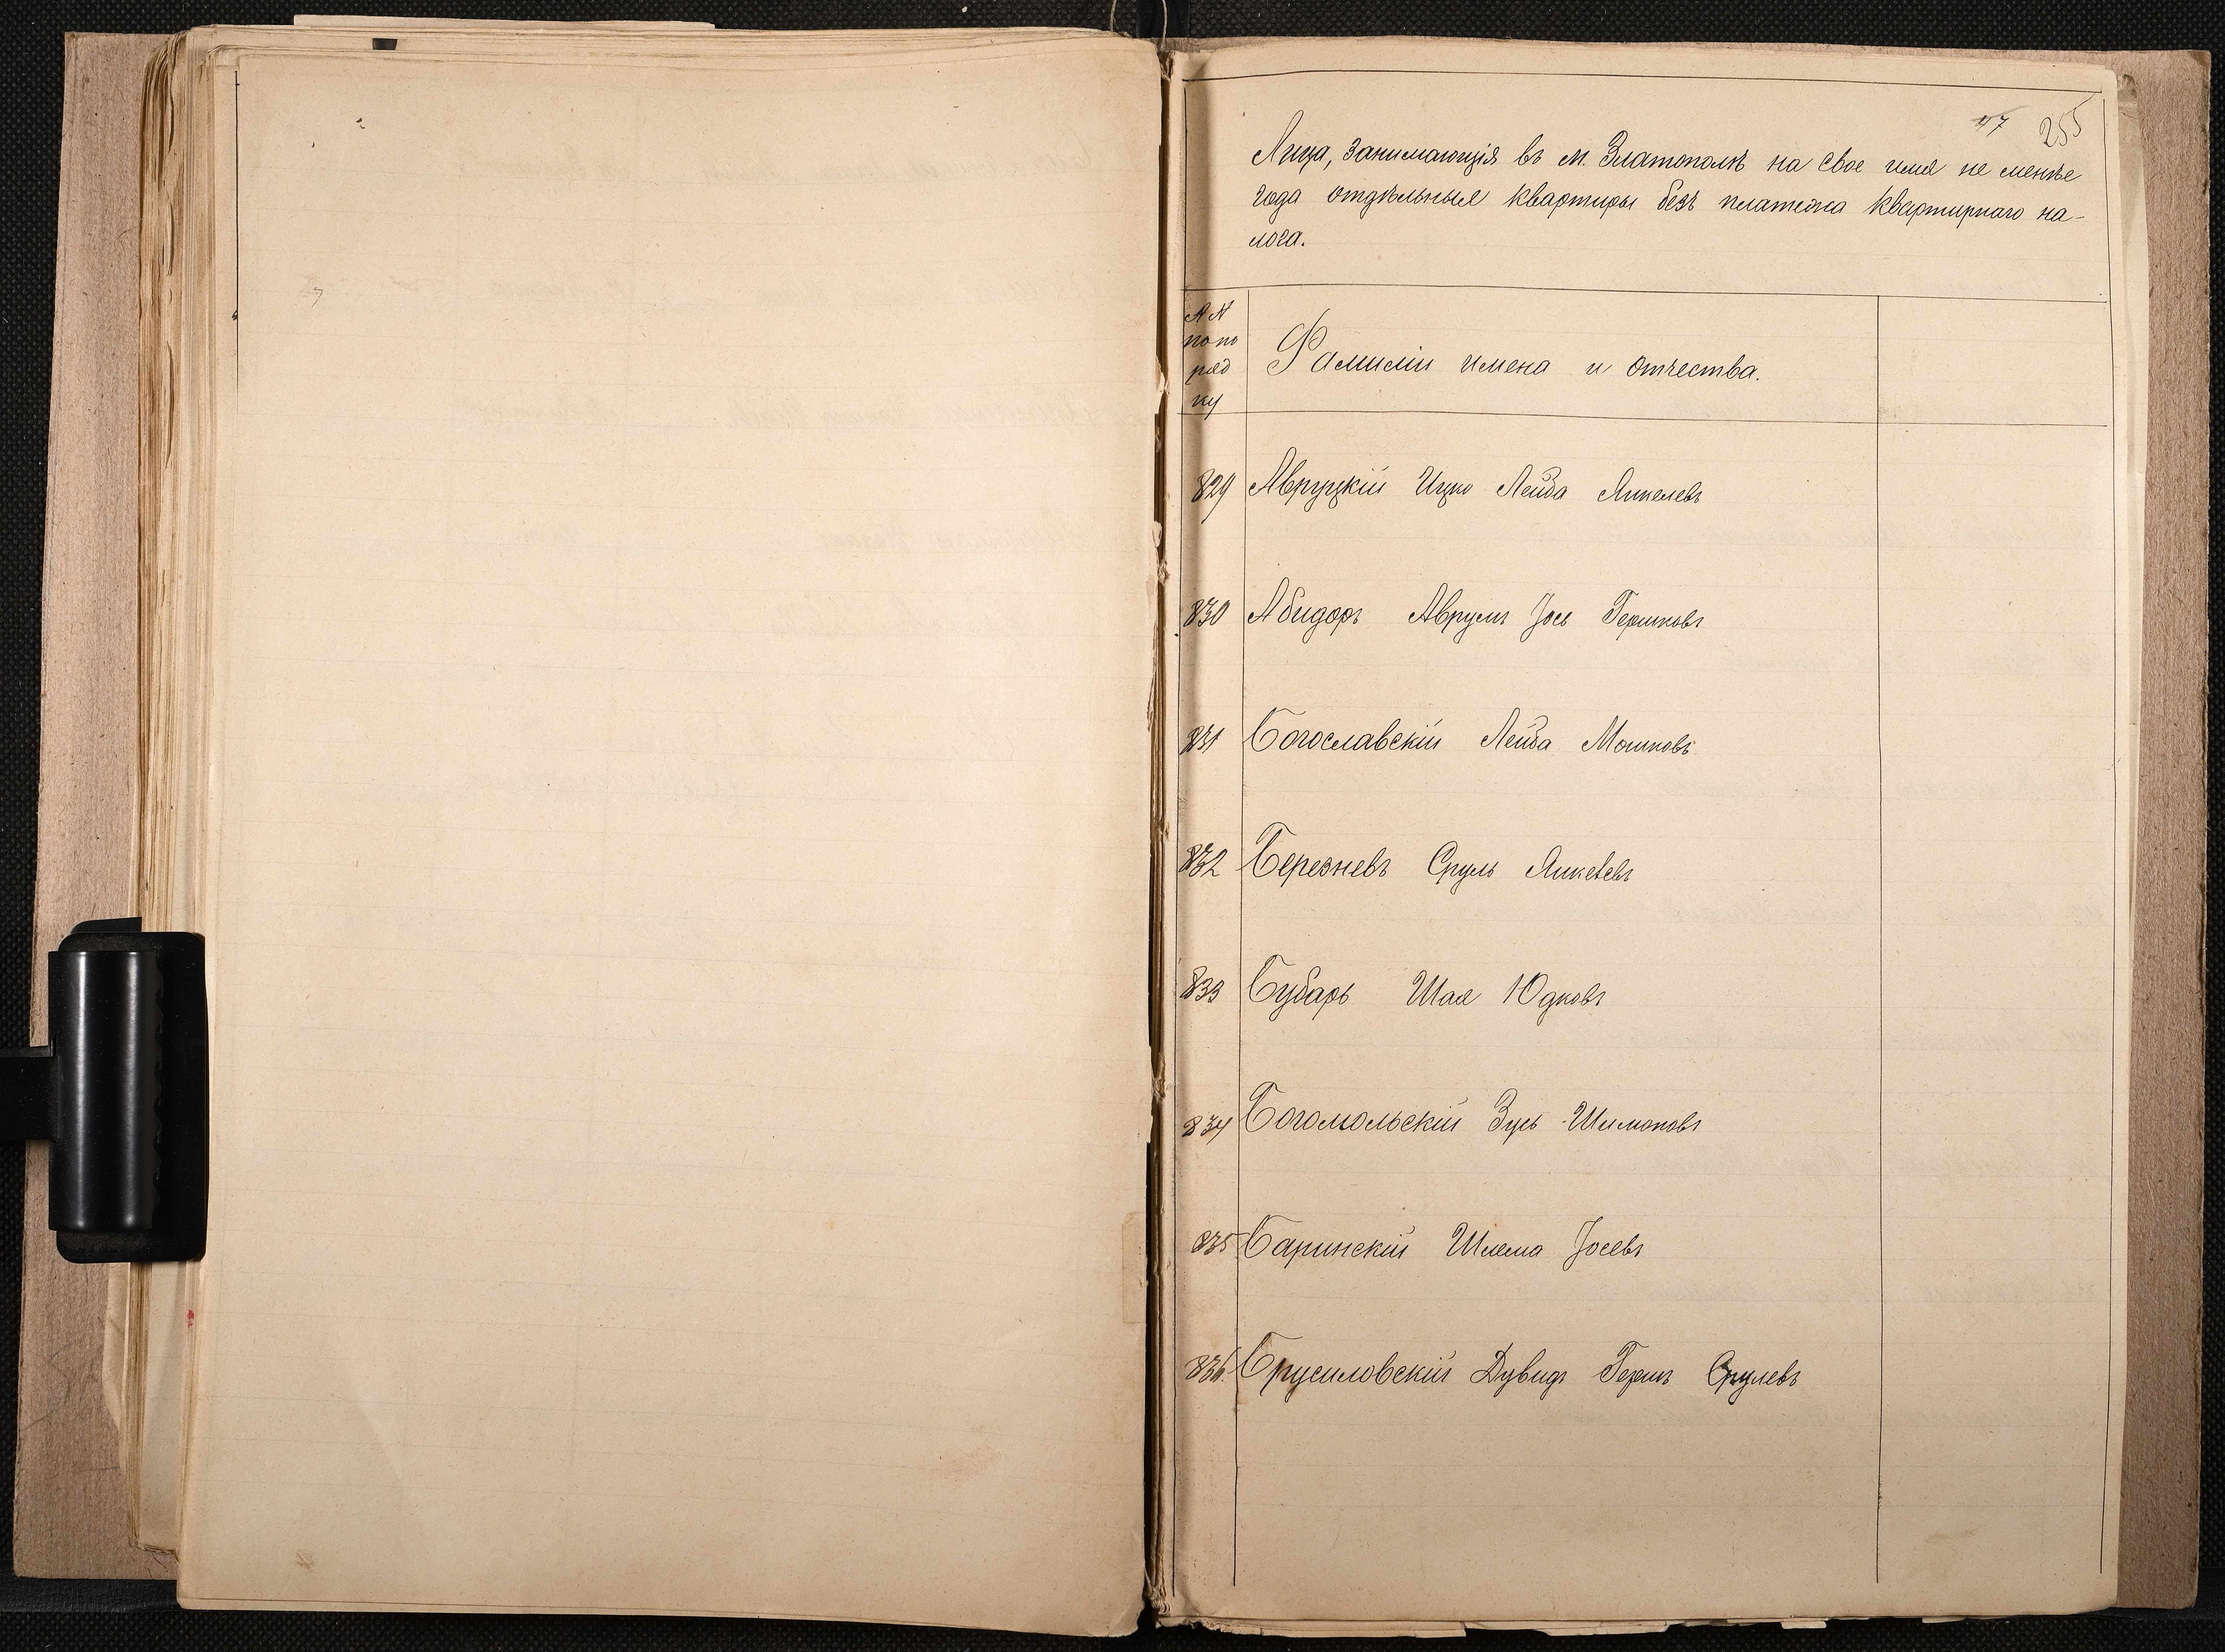 47 255
Лица, занимающія въ м. Златополѣ на свое имя не менѣе
года отдѣльныя квартиры безъ платежа квартирнаго на-
лога.
№№
по по
ряд
ку
Фамиліи имена и отчества.
829 Авруцкій Ицко Лейба Янкелевъ
830 Абидоръ Аврумъ Іось Гершковъ
831 Богославскій Лейба Мошковъ
832 Березневъ Сруль Янкелевъ
833 Бубарь Шая Юдковъ
834 Богомольскій Зусь Шимоновъ
835 Баринскій Шлема Іосевъ
836. Брусиловскій Дувидъ Гершъ Срулевъ